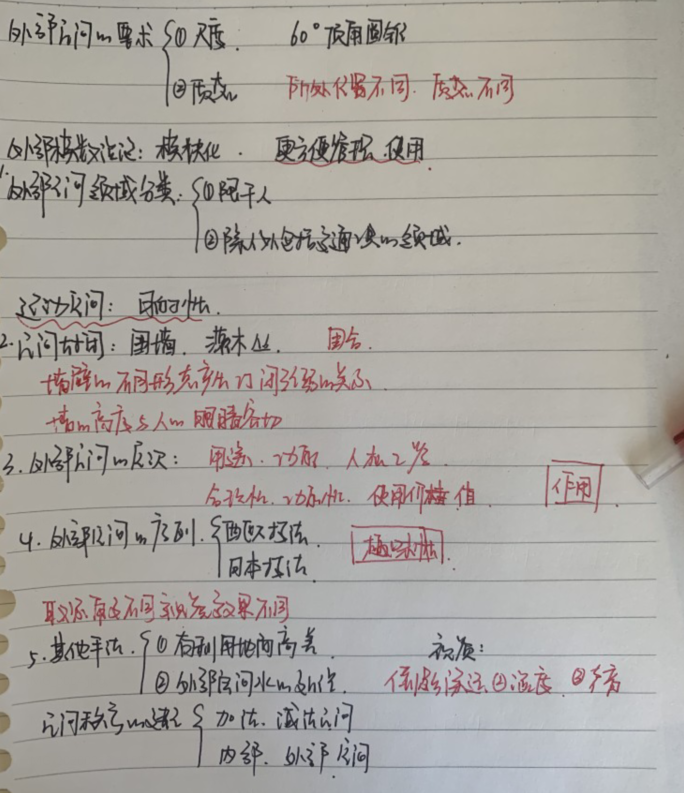 外部空间的要求 { ① 尺度. 60° 顶角圆锥
② 质感 所处位置不同. 质感不同
外部模数论记: 模块化. 更方便管理 使用
1. 外部空间领域分类: { ① 限于人
② 除人外包括交通工具的领域.
运动空间: 目的性.
2. 空间封闭: 围墙. 灌木丛 围合.
墙壁的不同形态产生的闭 强的关系
墙的高度与人的眼睛密切
3. 外部空间的层次: 用途. 功能. 人
合 性. 功能性. 使用价值 作用
4. 外部空间的序列. { 西欧 法.
日本 法.
取决 不同 效果不同
5. 其他手法. { ① 有利用地面高差.
② 外部空间水的处理. 视频:
深 ① 温度. ②
空间秩序的建立 { 加法. 减法空间
内部. 外部空间